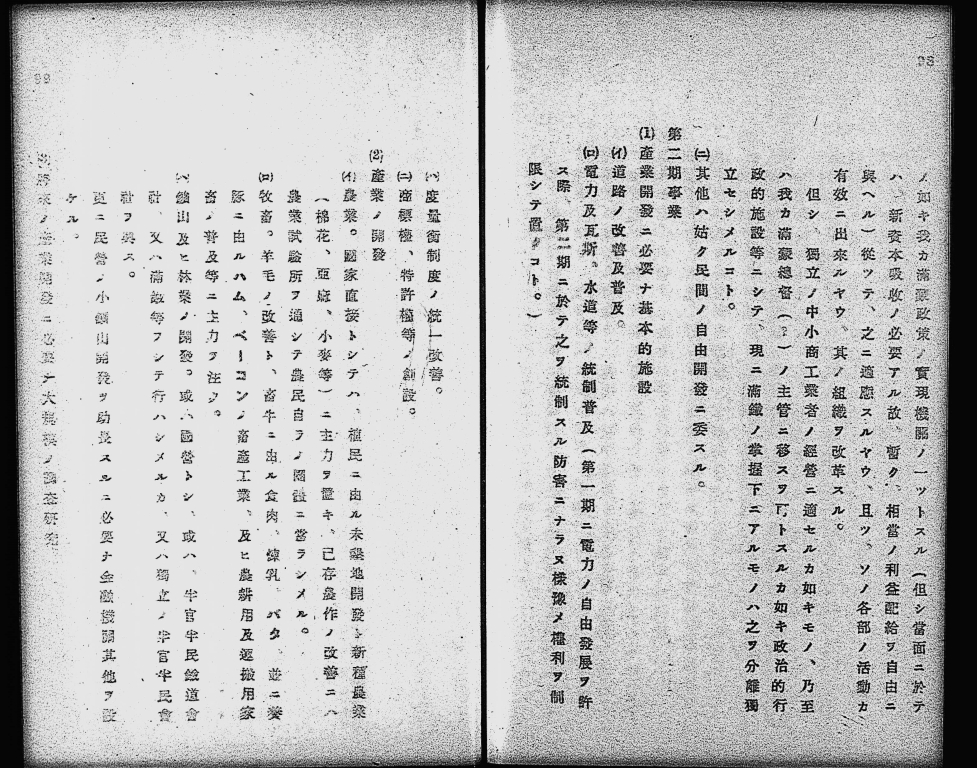 ノ如キ我カ滿蒙政策ノ實現機關ノ一ツトスル（但シ當面ニ於テ
ハ、新資本吸收ノ必要アル故、暫ク、相當ノ利益配給ヲ自由ニ
與ヘル）從ツテ、之ニ適應スルヤウ、且ツ、ソノ各部ノ活動カ
有效ニ出來ルヤウ、其ノ組織ヲ改革スル。
但シ、獨立ノ中小商工業者ノ經營ニ適セルカ如キモノ、乃至
ハ我カ滿蒙總督（？）ノ主管ニ移スヲ可トスルカ如キ政治的行
政的施設等ニシテ、現ニ滿鐵ノ掌握下ニアルモノハ之ヲ分離獨
立セシメルコト。
㈡其他ハ姑ク民間ノ自由開發ニ委スル。
第二期事業
(1)產業開發ニ必要ナ基本的施設
(イ)道路ノ改善及普及。
(ロ)電力及瓦斯。水道等ノ統制普及（第一期ニ電力ノ自由發展ヲ許
ス際、第二期ニ於テ之ヲ統制スル防害ニナラヌ樣豫メ權利ヲ制
限シテ置クコト。）
度量衡制度ノ統一改善。
㈡商標權、特許權等ノ創設。
(2)產業ノ開發
(イ)農業。國家直接トシテハ、植民ニ由ル未墾地開發ト新種農業
（棉花、亞麻、小麥等）ニ主力ヲ置キ、已存農作ノ改善ニハ
農業試驗所ヲ通シテ農民自ラノ團體ニ當ラシメル。
(ロ)牧畜。羊毛ノ改善ト、畜牛ニ由ル食肉、煉乳、バタ、並ニ養
豚ニ由ルハム、ベーコンノ畜產工業、及ヒ農耕用及運搬用家
畜ノ普及等ニ主力ヲ注ク。
(ハ)鑛山及ヒ林業ノ開發。或ハ國營トシ、或ハ、半官半民鐵道會
社、又ハ滿鐵等ヲシテ行ハシメルカ、又ハ獨立ノ半官半民會
社ヲ興ス。
更ニ民營ノ小鑛山開發ヲ助長スルニ必要ナ金融機關其他ヲ設
ケル。
ノ產業開發ニ必要ナ大規模ノ調査研究